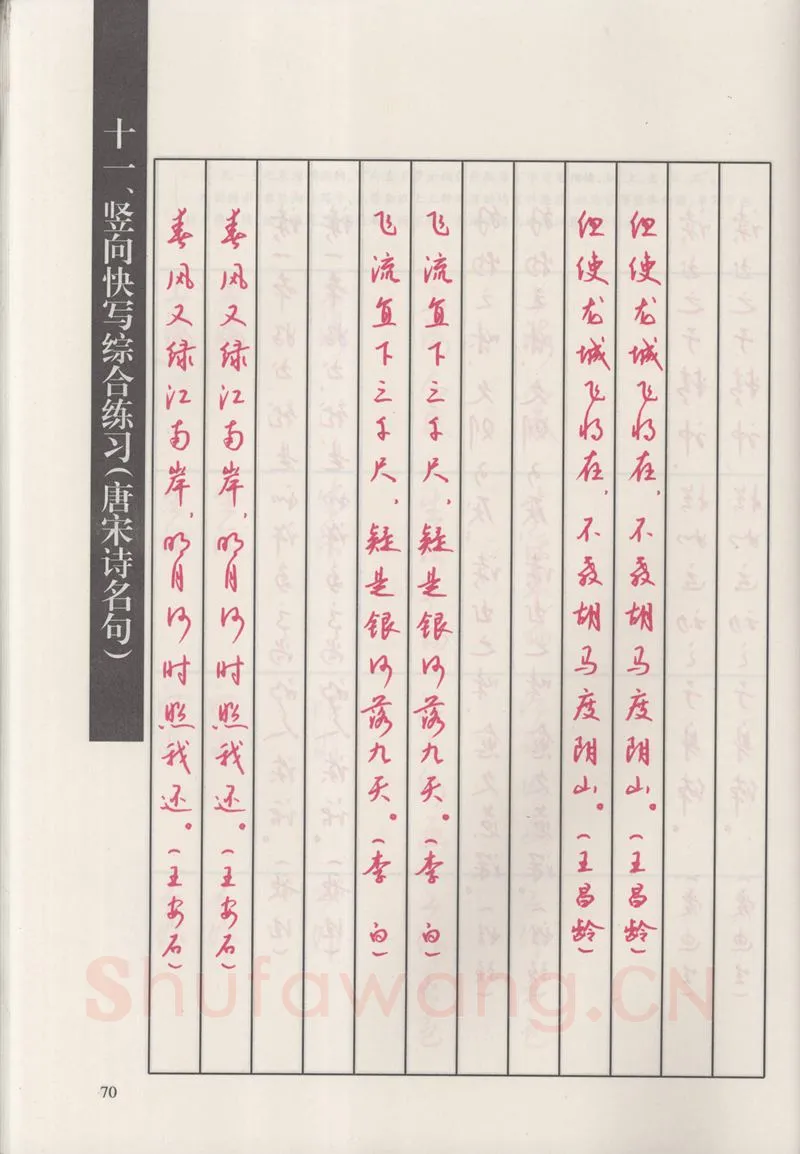 十一、竖向快写综合练习(唐宋诗名句)
但使龙城飞将在，不教胡马度阴山。(王昌龄)
但使龙城飞将在，不教胡马度阴山。(王昌龄)
飞流直下三千尺，疑是银河落九天。(李 白)
飞流直下三千尺，疑是银河落九天。(李 白)
春风又绿江南岸，明月何时照我还。(王安石)
春风又绿江南岸，明月何时照我还。(王安石)
Shufawang.CN
70